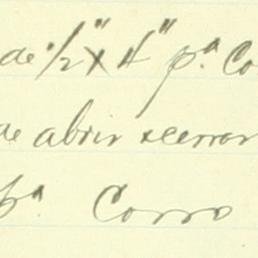 de 1/2" x 4" pª Co
de abrir y cerrar
pª Corro